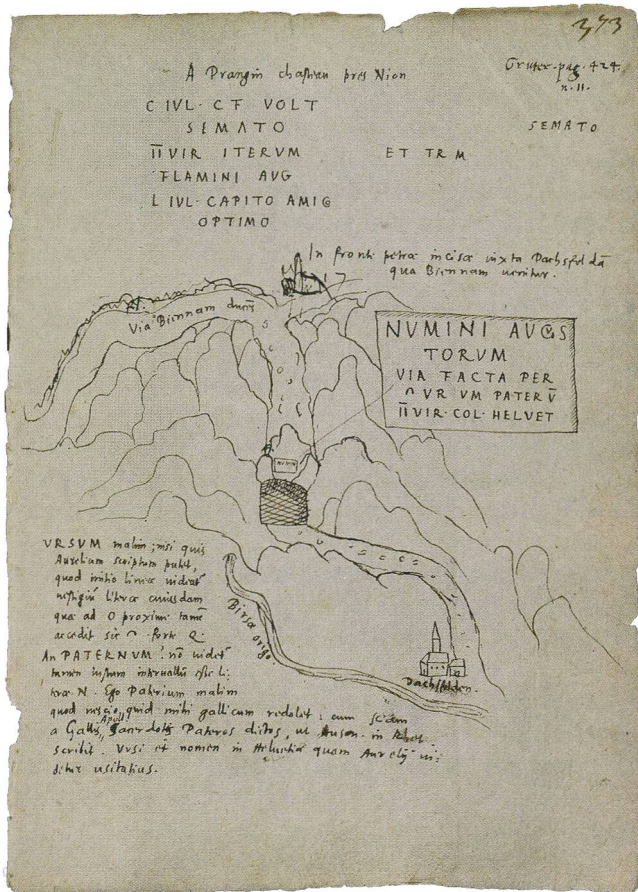 373
A Prangin chasteau pres Nion
Gruter. pag. 424.
n. 11.
C IVL · C F VOLT
SEMATO
SEMATO
II VIR ITERVM ET TR M
FLAMINI AVG
L IVL · CAPITO AMIC
OPTIMO
In fronte petræ incisæ iuxta Dachsfeldā
qua Biennam
Via Biennam
NUMINI AUGS
TORUM
VIA FACTA PER
VR UM PATERV̄
II VIR · COL · HELVET
NUMIN
URSUM malim; nisi quis
Aurelium scriptum putet,
quod initio lineæ
literæ cuiusdam
quæ ad O proxime tamē
accedit sic forte Q.
An PATERNUM? nō
tamen iustum intervallū esse li:
teræ N. Ego Paterium malim
quod nescio quid mihi gallicum redolet: cum
a Gallis Apoll. Sacerdotes Pateros dictos, ut Auson. in
scribit. Ursi et nomen in Helvetia quam Aurelij vi:
detur usitatius.
Birsæ origo
Dachsfelden.